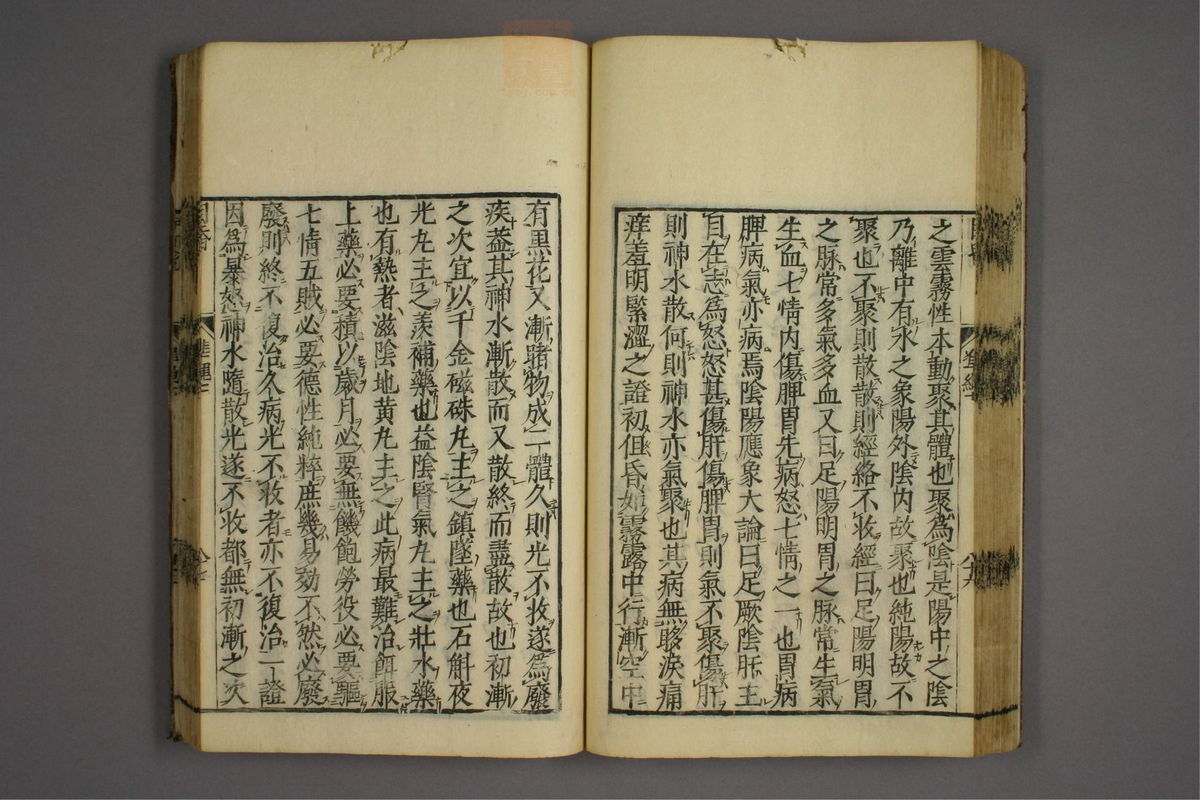 之雲霧性本動聚其體也聚爲陰是陽中之陰
乃離中有水之象陽外陰内故聚也純陽故不
聚也不聚則散散則經絡不收經曰足陽明胃
之脉常多氣多血又曰足陽明胃之脉常生氣
生血七情内傷脾胃先病怒七情之一也胃病
脾病氣亦病焉陰陽應象大論曰足厥陰肝主
目在志爲怒怒甚傷肝傷脾胃則氣不聚傷肝
則神水散何則神水亦氣聚也其病無眵淚痛
痒羞明緊澀之證初但昏如霧露中行漸空中
有黒花又漸睹物成二體久則光不收遂爲廢
疾蓋其神水漸散而又散終而盡散故也初漸
之次宜以千金磁硃丸主之鎮墜藥也石斛夜
光丸主之羨補藥也益陰腎氣丸主之壯水藥
也有熱者滋陰地黄丸主之此病最難治餌服
上藥必要積以歲月必要無饑飽勞役必要驅
七情五賊必要德性純粹庶幾易効不然必廢
廢則終不復治久病光不收者亦不復治一證
因爲暴怒神水隨散光遂不收都無初漸之次